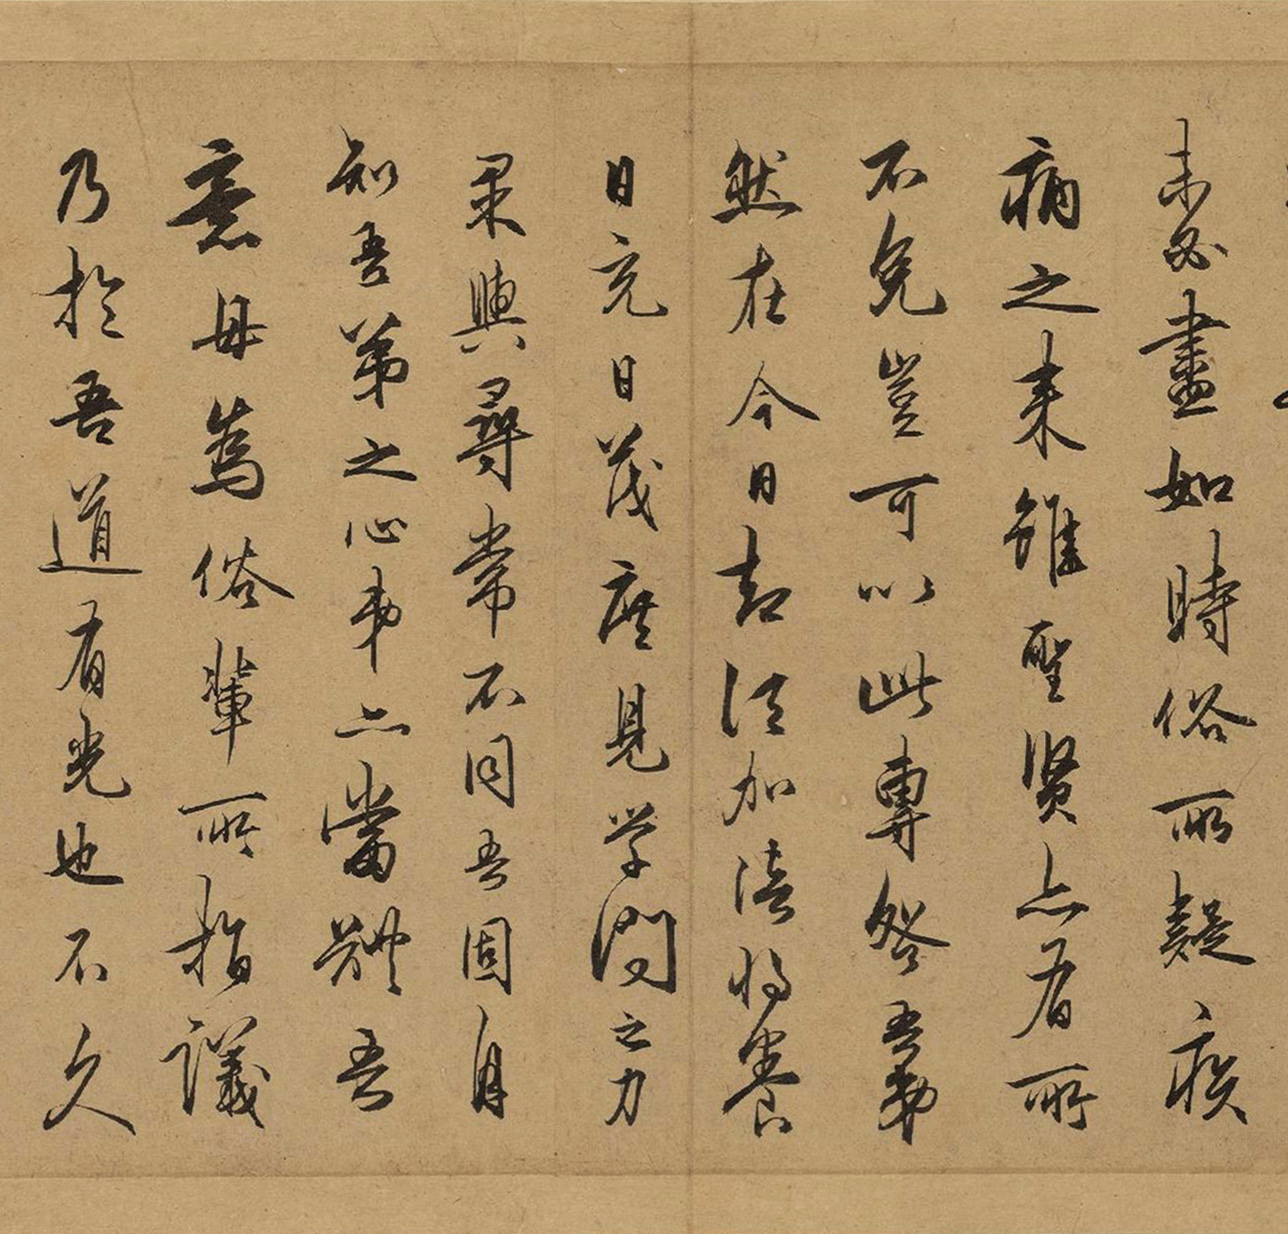 未必盡如時俗所疑疾
病之来雖聖賢亦有所
不免豈可以此專咎吾弟
然在今日却須加倍將養
日充日茂庶見学問之力
果與尋常不同吾固自
知吾弟之心弟亦當體吾
意毋為俗輩所指議
乃於吾道有光也不久